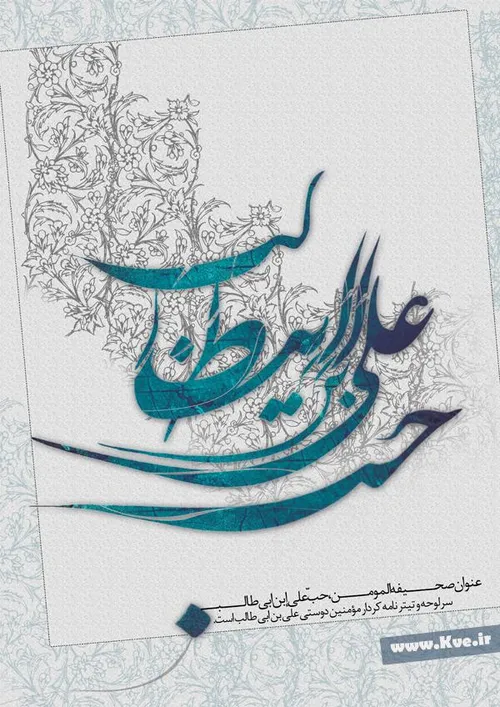 حب
علی بن ابیطالب
عنوان صحیفه المومن، حبّ علی ابن ابی طالب
سرلوحه و تیتر نامه کردار مؤمنین دوستی علی بن ابی طالب است.
www.Kve.ir